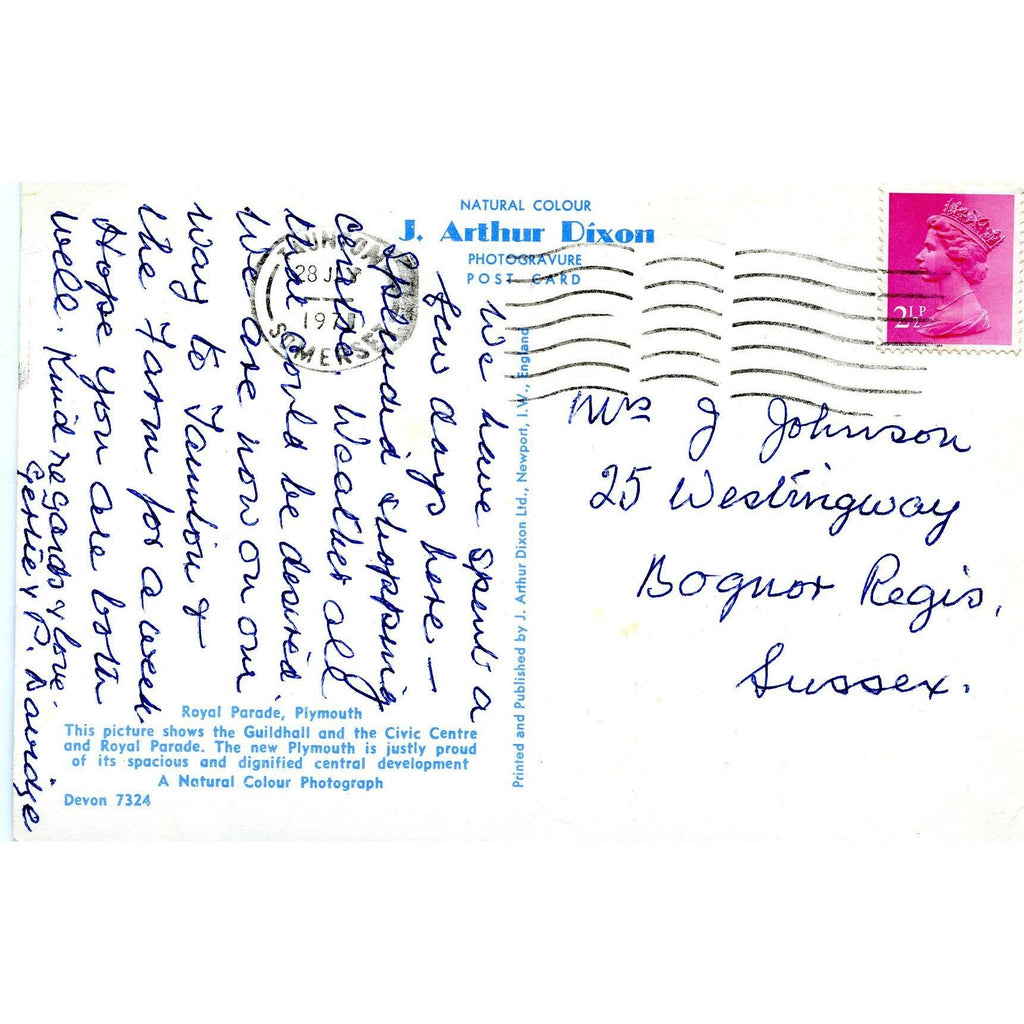 NATURAL COLOUR
J. Arthur Dixon
PHOTOGRAVURE
POST CARD
TAUNTON
28 J
197
SOMERSET
2½P
We have spent a
few days here —
Splendid shopping
centre. Weather all
that could be desired.
We are now on our
way to Taunton &
the Farm for a week.
Hope you are both
well. Kind regards & love
Gertie & P.
Mrs J Johnson
25 Westingway
Bognor Regis,
Sussex.
Printed and Published by J. Arthur Dixon Ltd., Newport, I.W., England
Royal Parade, Plymouth
This picture shows the Guildhall and the Civic Centre
and Royal Parade. The new Plymouth is justly proud
of its spacious and dignified central development
A Natural Colour Photograph
Devon 7324